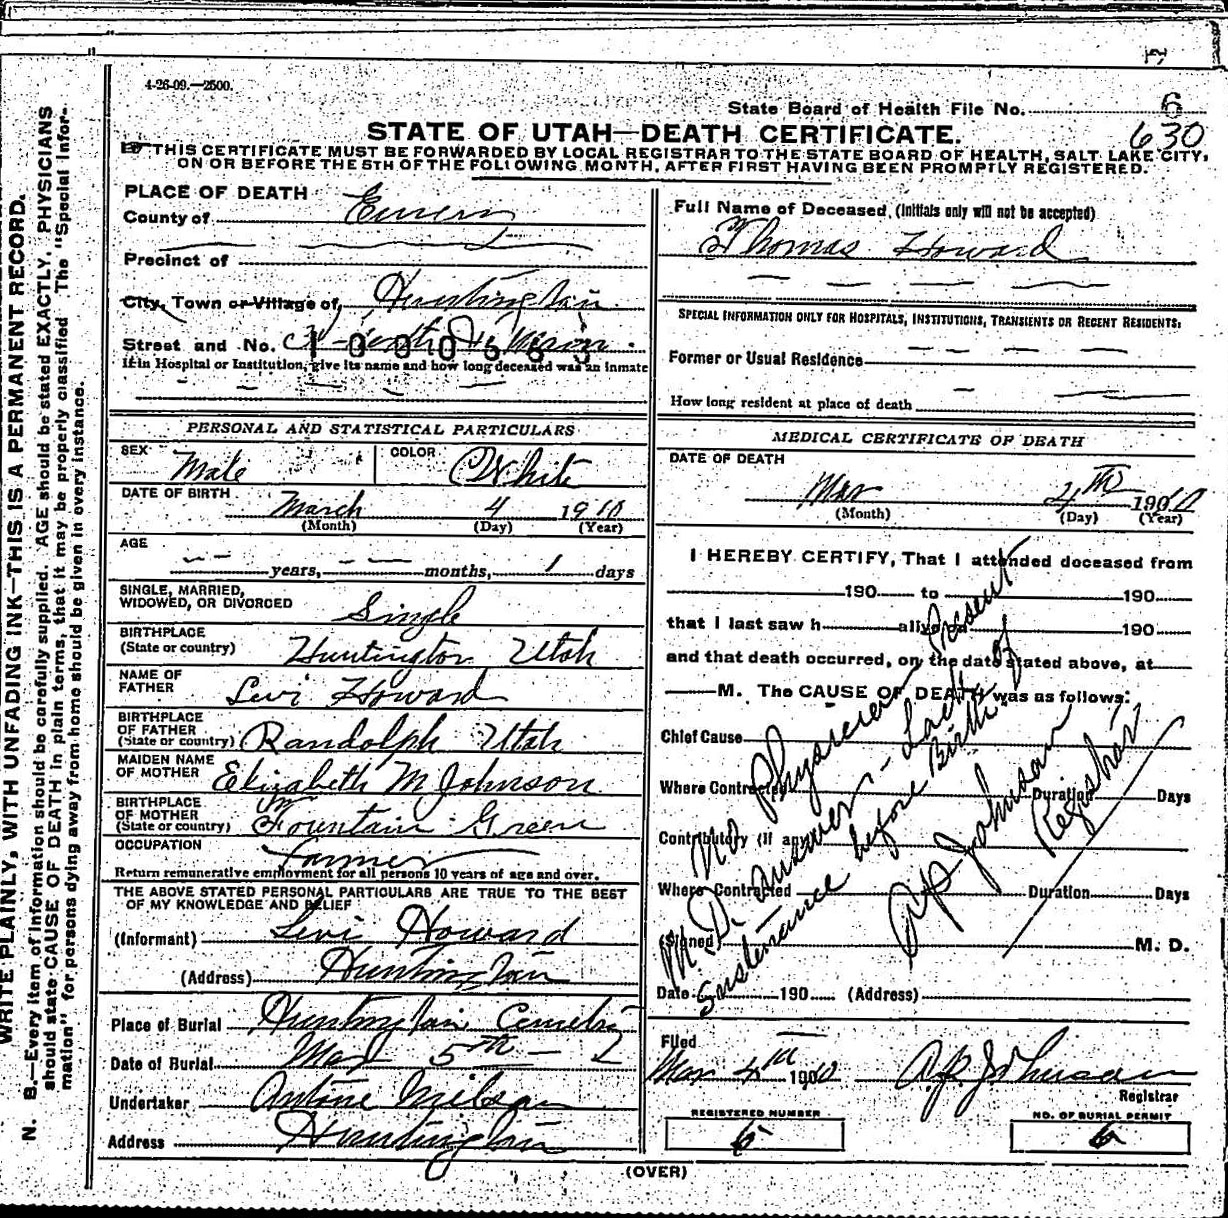 4-26-09.—2500.
State Board of Health File No. 6
630
STATE OF UTAH—DEATH CERTIFICATE.
THIS CERTIFICATE MUST BE FORWARDED BY LOCAL REGISTRAR TO THE STATE BOARD OF HEALTH, SALT LAKE CITY,
ON OR BEFORE THE 5TH OF THE FOLLOWING MONTH, AFTER FIRST HAVING BEEN PROMPTLY REGISTERED.
WRITE PLAINLY, WITH UNFADING INK—THIS IS A PERMANENT RECORD.
N. B.—Every item of information should be carefully supplied. AGE should be stated EXACTLY. PHYSICIANS
should state CAUSE OF DEATH in plain terms, that it may be properly classified The "Special Infor-
mation" for persons dying away from home should be given in every instance.
PLACE OF DEATH
County of Emery
Precinct of
City, Town or Village of, Huntington
Street and No.
If in Hospital or Institution, give its name and how long deceased was an inmate
PERSONAL AND STATISTICAL PARTICULARS
SEX Male COLOR White
DATE OF BIRTH March 4 1910
(Month) (Day) (Year)
AGE
years, months, 1 days
SINGLE, MARRIED,
WIDOWED, OR DIVORCED Single
BIRTHPLACE
(State or country) Huntington Utah
NAME OF
FATHER Levi Howard
BIRTHPLACE
OF FATHER
(State or country) Randolph Utah
MAIDEN NAME
OF MOTHER Elizabeth M Johnson
BIRTHPLACE
OF MOTHER
(State or country) Fountain Green
OCCUPATION farmer
Return remunerative employment for all persons 10 years of age and over.
THE ABOVE STATED PERSONAL PARTICULARS ARE TRUE TO THE BEST
OF MY KNOWLEDGE AND BELIEF
(Informant) Levi Howard
(Address) Huntington
Place of Burial Huntington
Date of Burial Mar 5th
Undertaker
Address Huntington
Full Name of Deceased, (Initials only will not be accepted)
Thomas Howard
SPECIAL INFORMATION ONLY FOR HOSPITALS, INSTITUTIONS, TRANSIENTS OR RECENT RESIDENTS:
Former or Usual Residence
How long resident at place of death
MEDICAL CERTIFICATE OF DEATH
DATE OF DEATH
Mar 4th 1910
(Month) (Day) (Year)
I HEREBY CERTIFY, That I attended deceased from
190 to 190
that I last saw h alive on 190
and that death occurred, on the date stated above, at
M. The CAUSE OF DEATH was as follows:
Chief Cause
Where Contracted Duration Days
Contributory (if any)
Where Contracted Duration Days
(Signed M. D.
Date 190 (Address)
No Physician Present
M.D. answer - Lack of
Sustenance before Birth
Johnson
Registrar
Filed
Mar 4th 1910 Johnson
Registrar
REGISTERED NUMBER
6
NO. OF BURIAL PERMIT
6
(OVER)